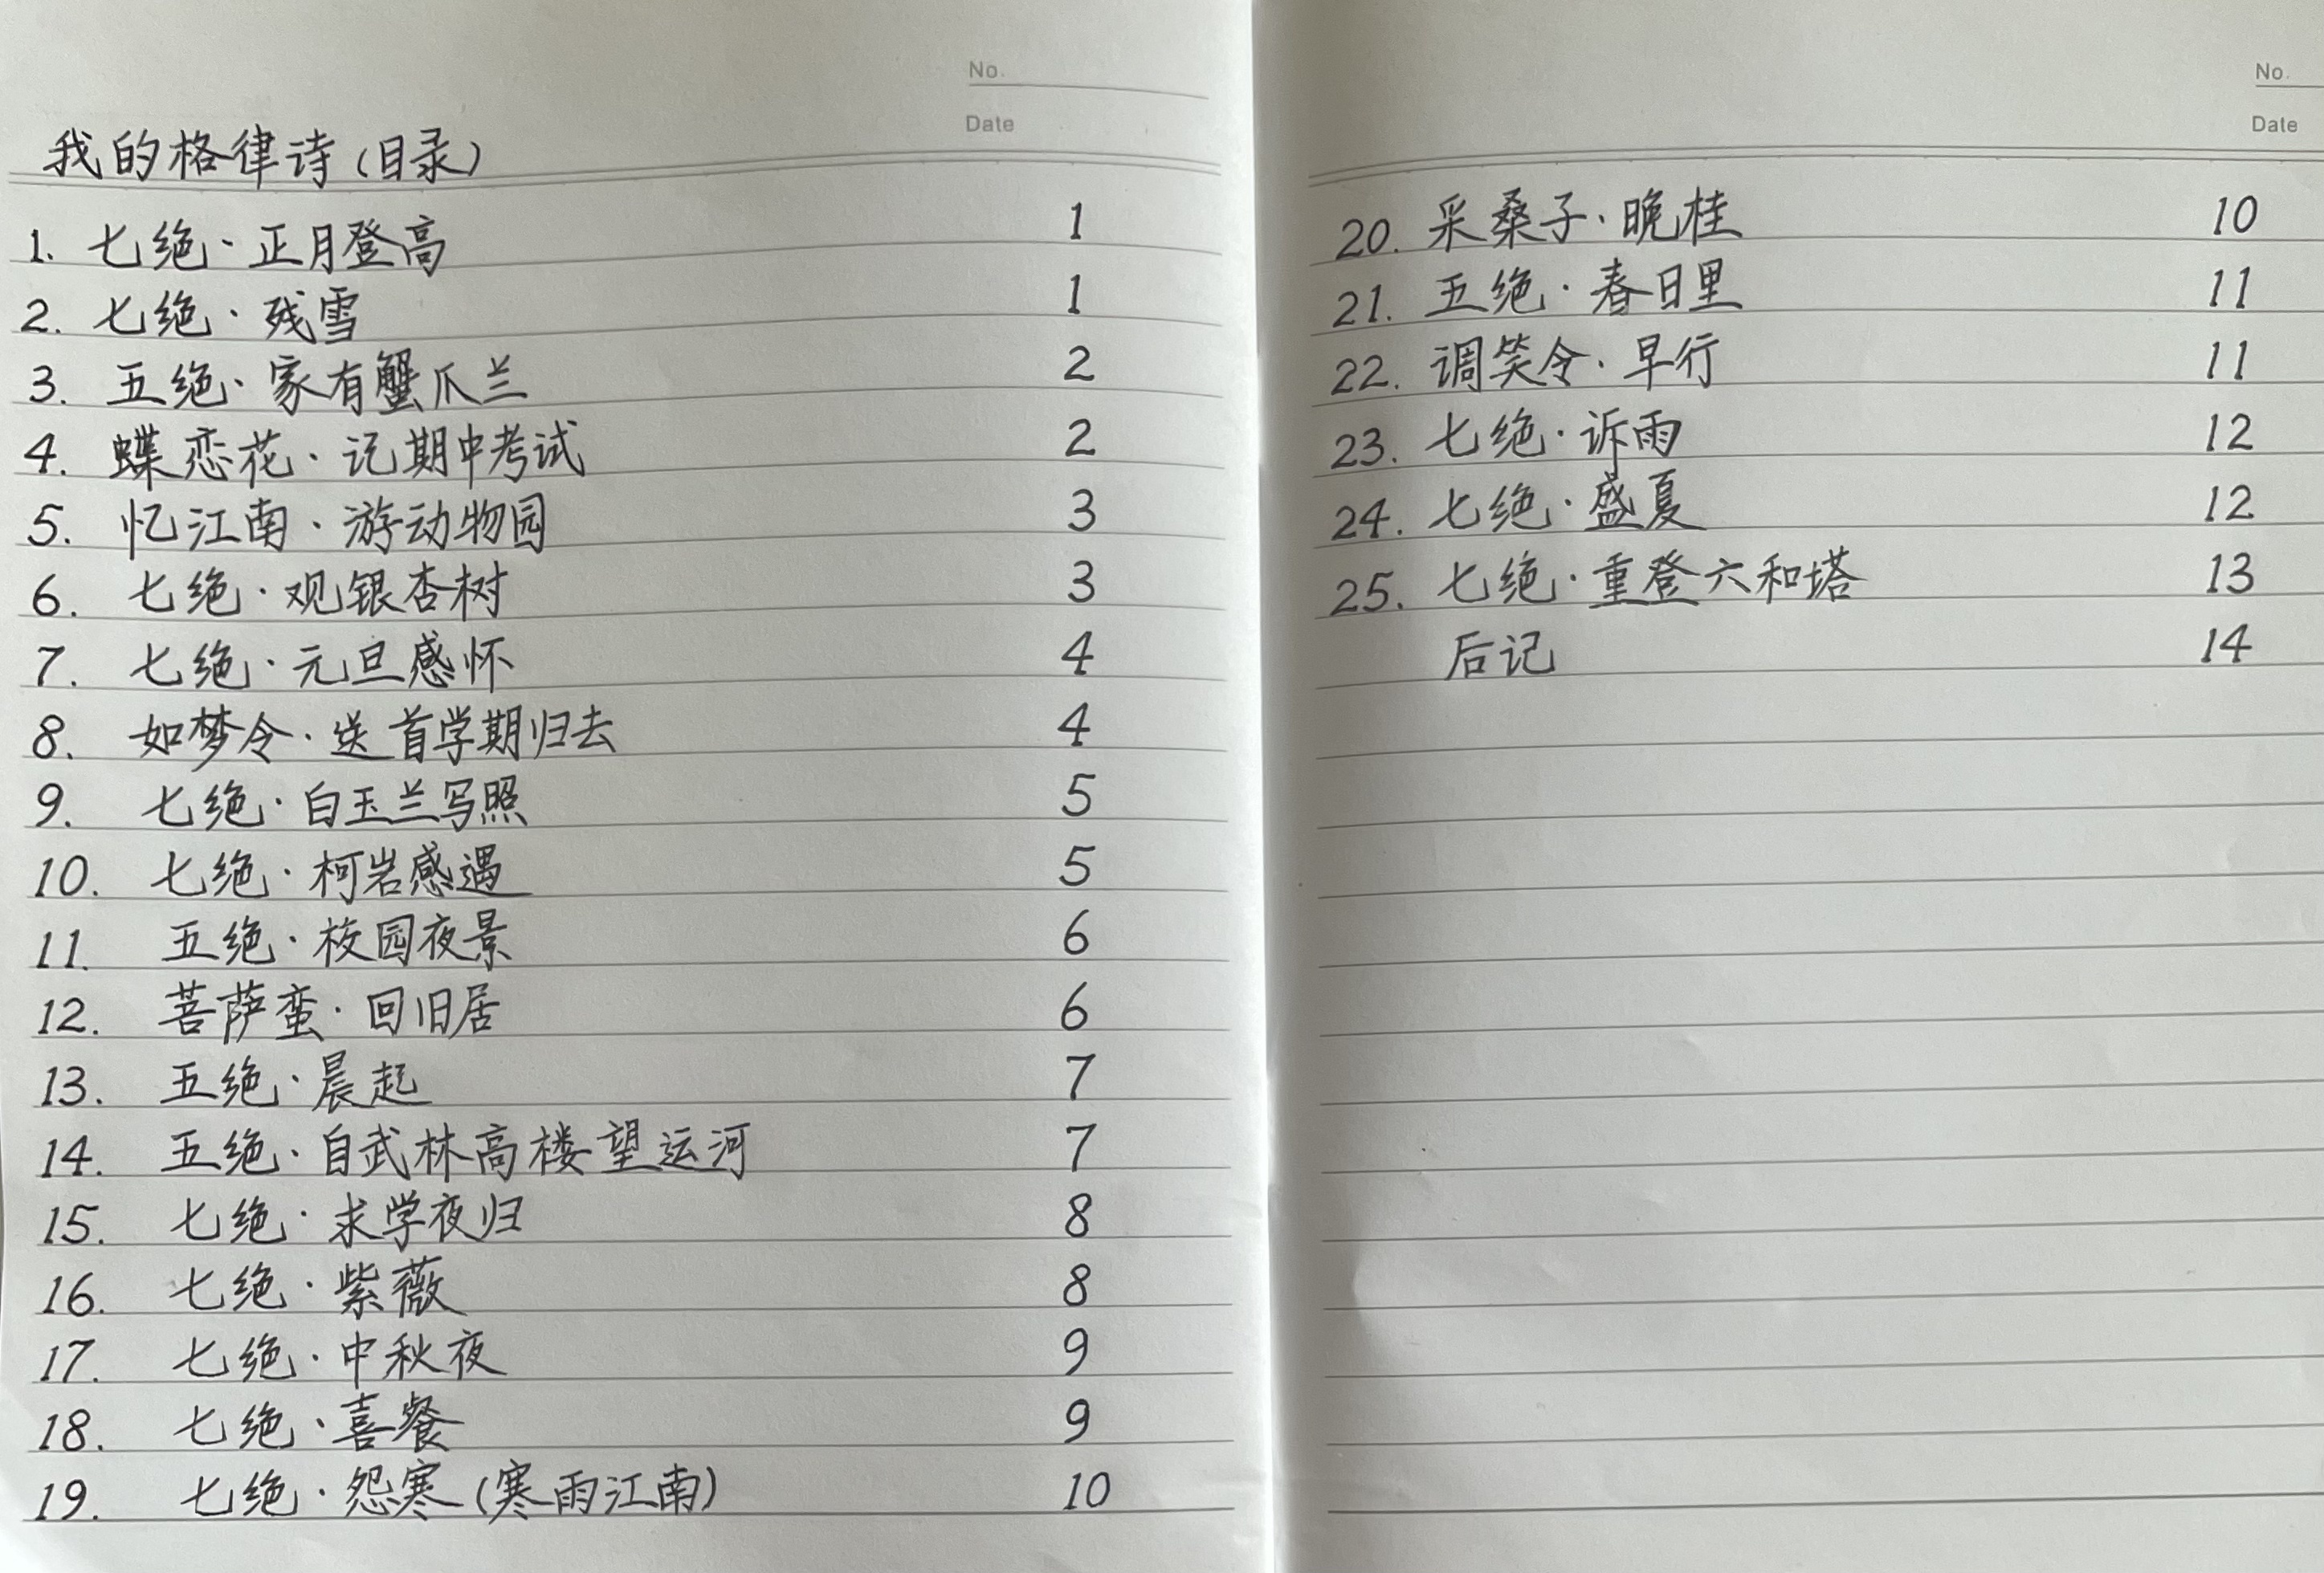 No.
Date
我的格律诗(目录)
1. 七绝·正月登高 1
2. 七绝·残雪 1
3. 五绝·家有蟹爪兰 2
4. 蝶恋花·记期中考试 2
5. 忆江南·游动物园 3
6. 七绝·观银杏树 3
7. 七绝·元旦感怀 4
8. 如梦令·送首学期归去 4
9. 七绝·白玉兰写照 5
10. 七绝·柯岩感遇 5
11. 五绝·校园夜景 6
12. 菩萨蛮·回旧居 6
13. 五绝·晨起 7
14. 五绝·自武林高楼望运河 7
15. 七绝·求学夜归 8
16. 七绝·紫薇 8
17. 七绝·中秋夜 9
18. 七绝·喜餐 9
19. 七绝·怨寒(寒雨江南) 10
No.
Date
20. 采桑子·晚桂 10
21. 五绝·春日里 11
22. 调笑令·早行 11
23. 七绝·诉雨 12
24. 七绝·盛夏 12
25. 七绝·重登六和塔 13
后记 14